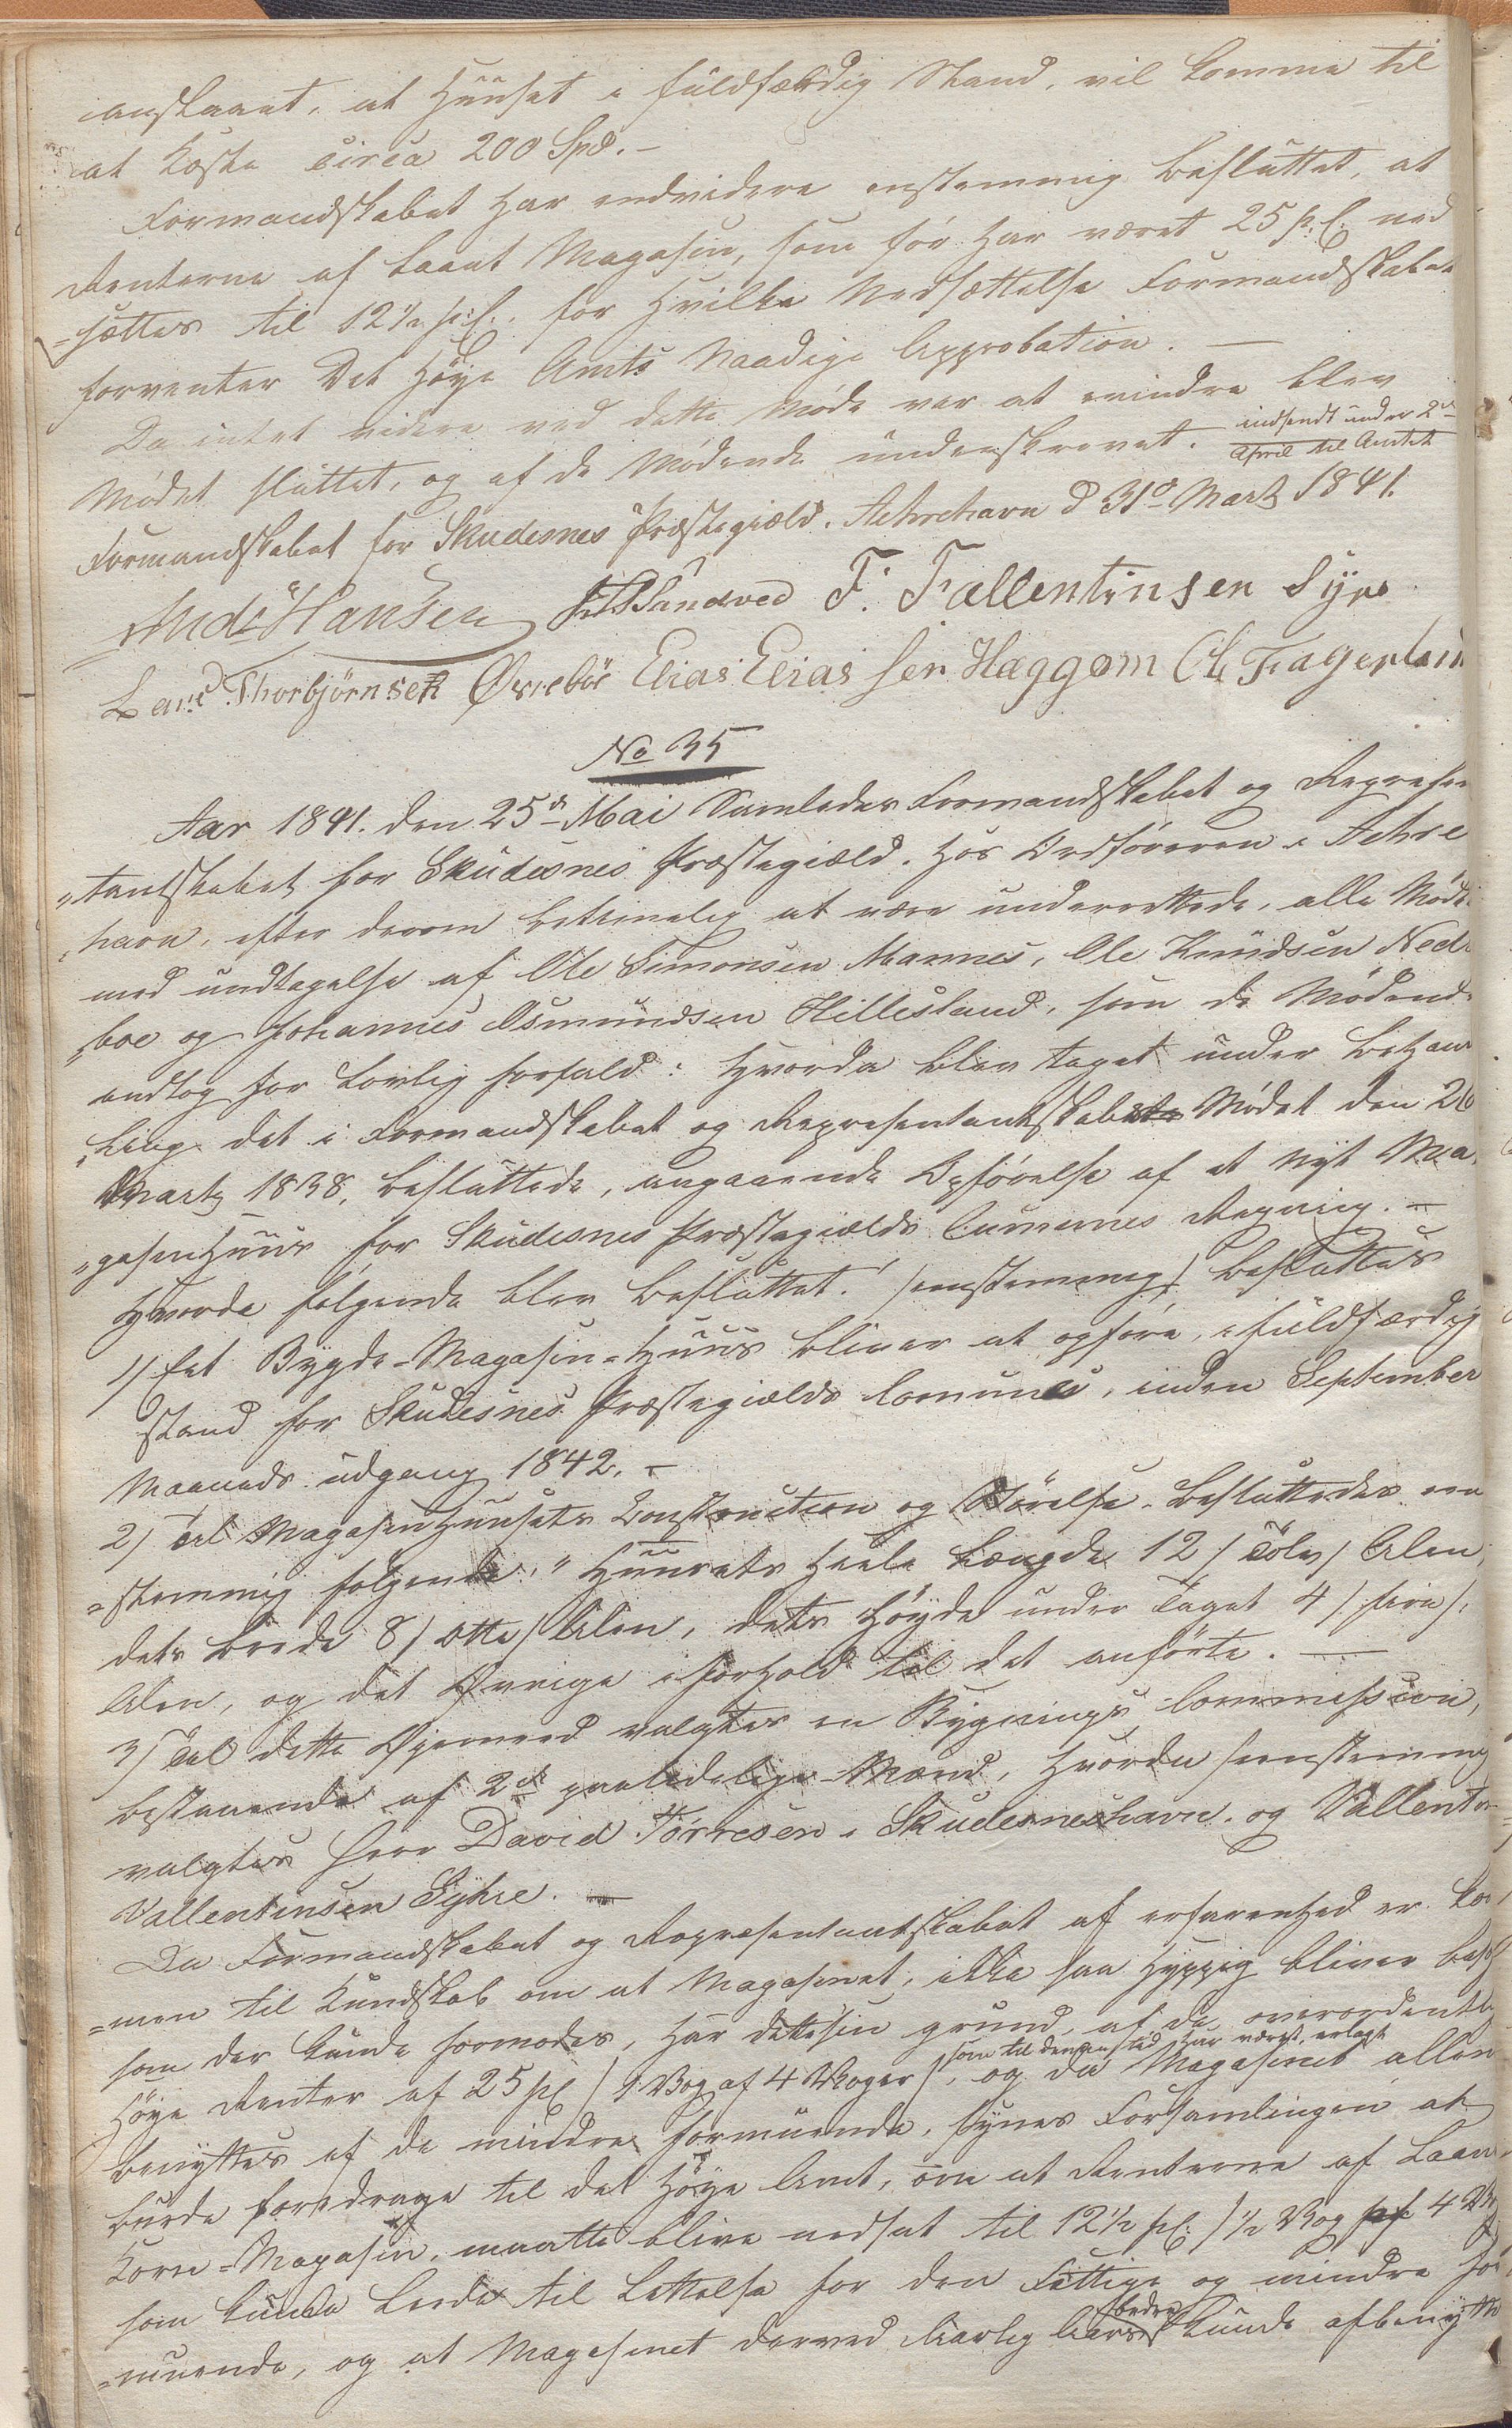 anslaaet, at Huuset i fuldfærdig Stand, vil komme til
at koste circa 200 Spd. –
Formandskabet har endvidere enstemmig besluttet, at
Renterne af Laant Magasin, som før har været 25 p. C. ned
=sættes til 12½ p. C. for hvilke Nedsættelse Formandskabet
forventer Det Høye Amts Naadige Approbation. —
Da intet videre ved dette Møde var at erindre blev
Mødet sluttet, og af de Mødende underskrevet. indsendt under 2den
April til Amtet
Formandskabet for Skudesnes Præstegiæld. Aehrehavn d 31te Marts 1841.
Ands Hansen Sandved F. Fallentinsen Syre
Lars Thorbjørnsen Øvrebør Elias Eliassen Hæggom Ch Fagerland
No 35
Aar 1841. den 25de Mai Samledes Formandskabet og Represen
„tantskabet for Skudesnes Præstegiæld. hos Ordføreren i Aehre
„havn, efter derom betimelig at være underrettede, alle Mødte
med undtagelse af Ole Simonsen Mannes, Ole Knudsen Ned
„boe og Johannes Osmundsen Hillesland, som de Mødende
andtog for Lovlig forfald: hvorda blev taget under Behand
„ling det i Formandskabet og Representantskabets Mødet den 26
Marts 1838, besluttede, angaaende Opførelse af et Nyt Ma
„gasinHuus for Skudesnes Præstegiælds Cumunes Regning. –
Hvorda følgende blev besluttet! (enstemmig) besluttes
1) Eet Bygde-Magasin-Huus bliver at opføre, i fuldfærdig
stand for Skudesnes Præstegiælds Comunes, inden September
Maaneds udgang 1842. –
2) Til MagasinHuusets Construction og Størelse. besluttedes een
=stemmig følgende: " Huusets heele Længde 12 (Tolv) Alen,
dets Brede 8 (otte) Alen, dets Høyde under Taget 4 (fire)
Alen, og det Øvrige i forhold til det anførte. —
3) Til dette Øyemeed valgtes en Bygnings Commission,
bestaaende af 2de paalidelige Mænd, hvorda (eenstemmig
valgtes Herr David Tørresen i Skudesneshavn. og Vallentin
Vallentinsen Syhre. —
Da Formandskabet og Representantskabet af erfarenhed er kom
=men til Kundskab om at Magasinet, ikke saa hyppig bliver be
som der kunde formodes, har dette sin grund, af de overordentlig
høye Renter af 25 pC (1 Vog af 4 Voger) som til denne tid har været erlagt, og da Magasinet allene
benyttes af de mindre formuende, synes Forsamlingen at
burde foredrage til det høye Amt, om at Renterne af Laan
Korn-Magasin, maatte blive nedsat til 12½ pC: (½ Vog pr 4 Vo
som kunde Lede til Lettelse for den Fattige og mindre for
=muende, og at Magasinet derved Aarlig bedre kunde afbenyttes